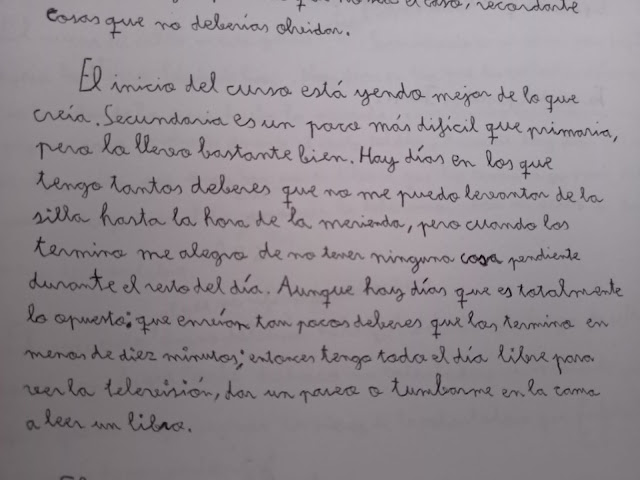 el caso, recordarte
cosas que no deberías olvidar.
El inicio del curso está yendo mejor de lo que
creía. Secundaria es un poco más difícil que primaria,
pero lo llevo bastante bien. Hay días en los que
tengo tantos deberes que no me puedo levantar de la
silla hasta la hora de la merienda, pero cuando los
termino me alegro de no tener ninguna cosa pendiente
durante el resto del día. Aunque hay días que es totalmente
lo opuesto: que envían tan pocos deberes que los termino en
menos de diez minutos; entonces tengo todo el día libre para
ver la televisión, dar un paseo o tumbarme en la cama
a leer un libro.